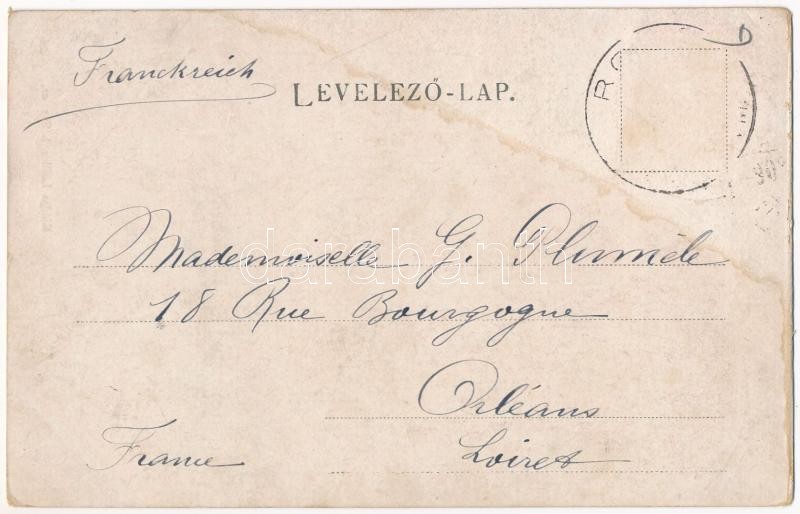 Franckreich
LEVELEZŐ-LAP.
Mademoiselle G. Plumèle
18 Rue Bourgogne
Orléans
France Loiret
darabanth